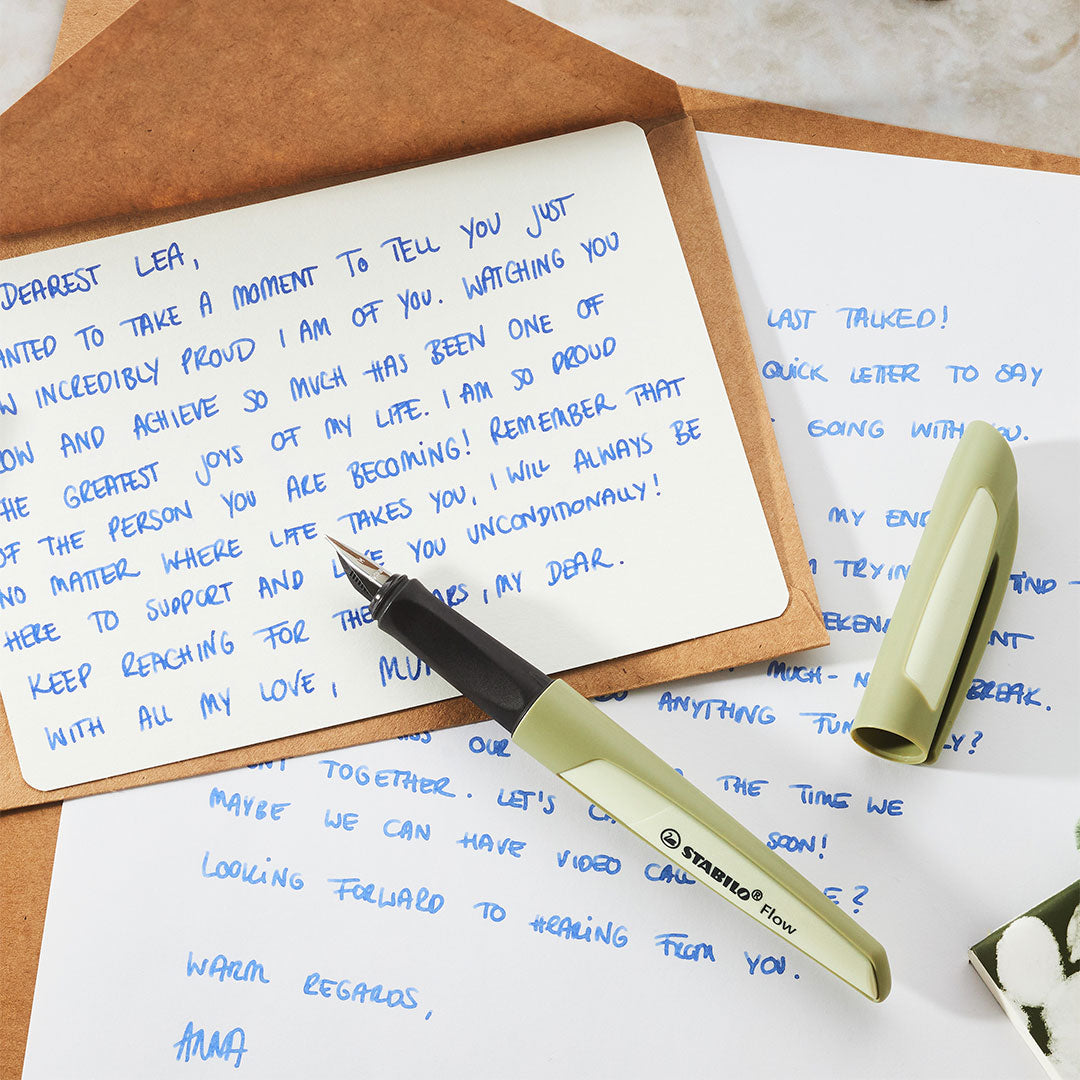 DEAREST LEA,
ANTED TO TAKE A MOMENT TO TELL YOU JUST
W INCREDIBLY PROUD I AM OF YOU. WATCHING YOU
OW AND ACHIEVE SO MUCH HAS BEEN ONE OF
HE GREATEST JOYS OF MY LIFE. I AM SO PROUD
OF THE PERSON YOU ARE BECOMING! REMEMBER THAT
NO MATTER WHERE LIFE TAKES YOU, I WILL ALWAYS BE
HERE TO SUPPORT AND YOU UNCONDITIONALLY!
KEEP REACHING FOR THE ARS, MY DEAR.
WITH ALL MY LOVE, MU
LAST TALKED!
QUICK LETTER TO SAY
GOING WITH YOU.
MY EN
TRYIN IND -
EKEN NT
MUCH- N BREAK.
ANYTHING FUN LY?
SS OUR THE TIME WE
NT TOGETHER. LET'S C SOON!
MAYBE WE CAN HAVE VIDEO CALL E?
LOOKING FORWARD TO HEARING FROM YOU.
WARM REGARDS,
ANNA
STABILO® Flow